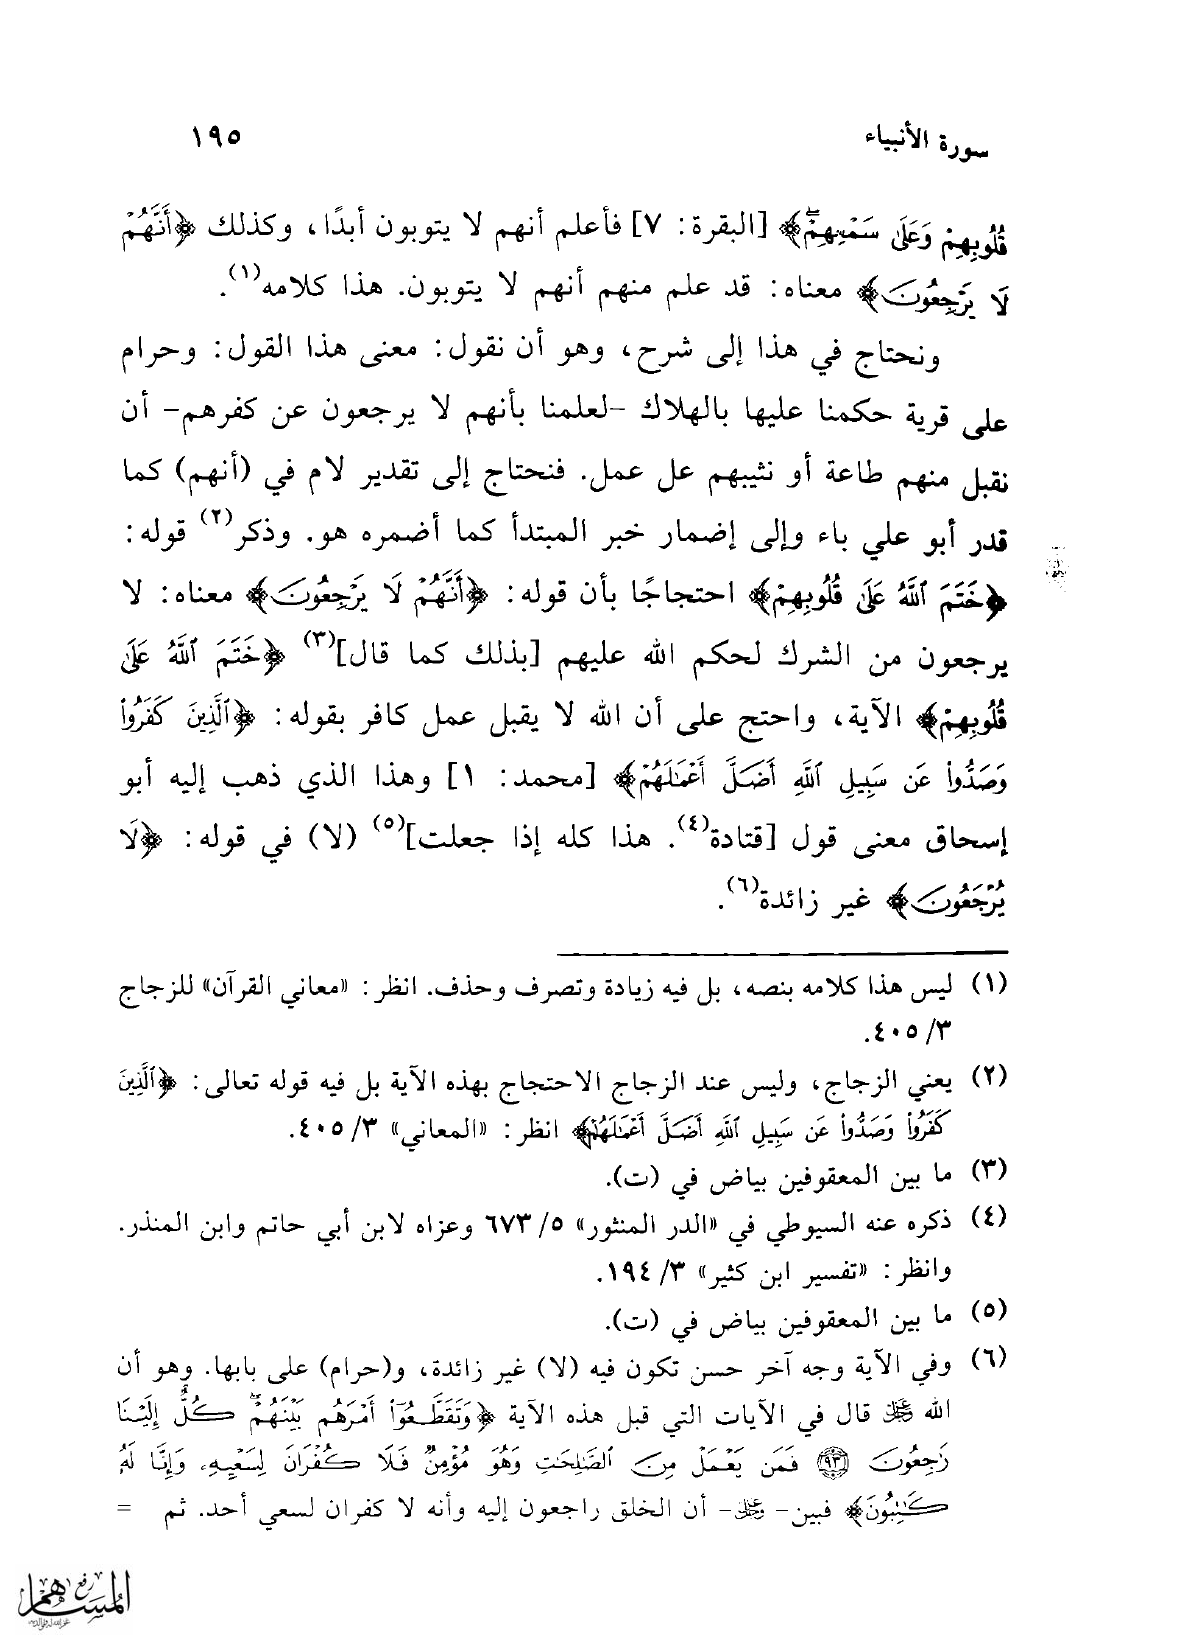 سورة الأنبياء ١٩٥
قُلُوبِهِمْ وَعَلَىٰ سَمْعِهِمْ﴾ [البقرة: ٧] فأعلم أنهم لا يتوبون أبدًا، وكذلك ﴿أَنَّهُمْ
لَا يَرْجِعُونَ﴾ معناه: قد علم منهم أنهم لا يتوبون. هذا كلامه(١).
ونحتاج في هذا إلى شرح، وهو أن نقول: معنى هذا القول: وحرام
على قرية حكمنا عليها بالهلاك -لعلمنا بأنهم لا يرجعون عن كفرهم- أن
نقبل منهم طاعة أو نثيبهم عل عمل. فنحتاج إلى تقدير لام في (أنهم) كما
قدر أبو علي باء وإلى إضمار خبر المبتدأ كما أضمره هو. وذكر(٢) قوله:
﴿خَتَمَ ٱللَّهُ عَلَىٰ قُلُوبِهِمْ﴾ احتجاجًا بأن قوله: ﴿أَنَّهُمْ لَا يَرْجِعُونَ﴾ معناه: لا
يرجعون من الشرك لحكم الله عليهم [بذلك كما قال](٣) ﴿خَتَمَ ٱللَّهُ عَلَىٰ
قُلُوبِهِمْ﴾ الآية، واحتج على أن الله لا يقبل عمل كافر بقوله: ﴿ٱلَّذِينَ كَفَرُوا۟
وَصَدُّوا۟ عَن سَبِيلِ ٱللَّهِ أَضَلَّ أَعْمَـٰلَهُمْ﴾ [محمد: ١] وهذا الذي ذهب إليه أبو
إسحاق معنى قول [قتادة(٤). هذا كله إذا جعلت](٥) (لا) في قوله: ﴿لَا
يُرْجَعُونَ﴾ غير زائدة(٦).
(١) ليس هذا كلامه بنصه، بل فيه زيادة وتصرف وحذف. انظر: «معاني القرآن» للزجاج
٣/ ٤٠٥.
(٢) يعني الزجاج، وليس عند الزجاج الاحتجاج بهذه الآية بل فيه قوله تعالى: ﴿ٱلَّذِينَ
كَفَرُوا۟ وَصَدُّوا۟ عَن سَبِيلِ ٱللَّهِ أَضَلَّ أَعْمَـٰلَهُمْ﴾ انظر: «المعاني» ٣/ ٤٠٥.
(٣) ما بين المعقوفين بياض في (ت).
(٤) ذكره عنه السيوطي في «الدر المنثور» ٥/ ٦٧٣ وعزاه لابن أبي حاتم وابن المنذر.
وانظر: «تفسير ابن كثير» ٣/ ١٩٤.
(٥) ما بين المعقوفين بياض في (ت).
(٦) وفي الآية وجه آخر حسن تكون فيه (لا) غير زائدة، و(حرام) على بابها. وهو أن
الله ﷿ قال في الآيات التي قبل هذه الآية ﴿وَتَقَطَّعُوٓا۟ أَمْرَهُم بَيْنَهُمْ ۖ كُلٌّ إِلَيْنَا
رَٰجِعُونَ ٩٣ فَمَن يَعْمَلْ مِنَ ٱلصَّـٰلِحَـٰتِ وَهُوَ مُؤْمِنٌ فَلَا كُفْرَانَ لِسَعْيِهِۦ وَإِنَّا لَهُۥ
كَـٰتِبُونَ﴾ فبين- ﷿- أن الخلق راجعون إليه وأنه لا كفران لسعي أحد. ثم =
رفع المساهم